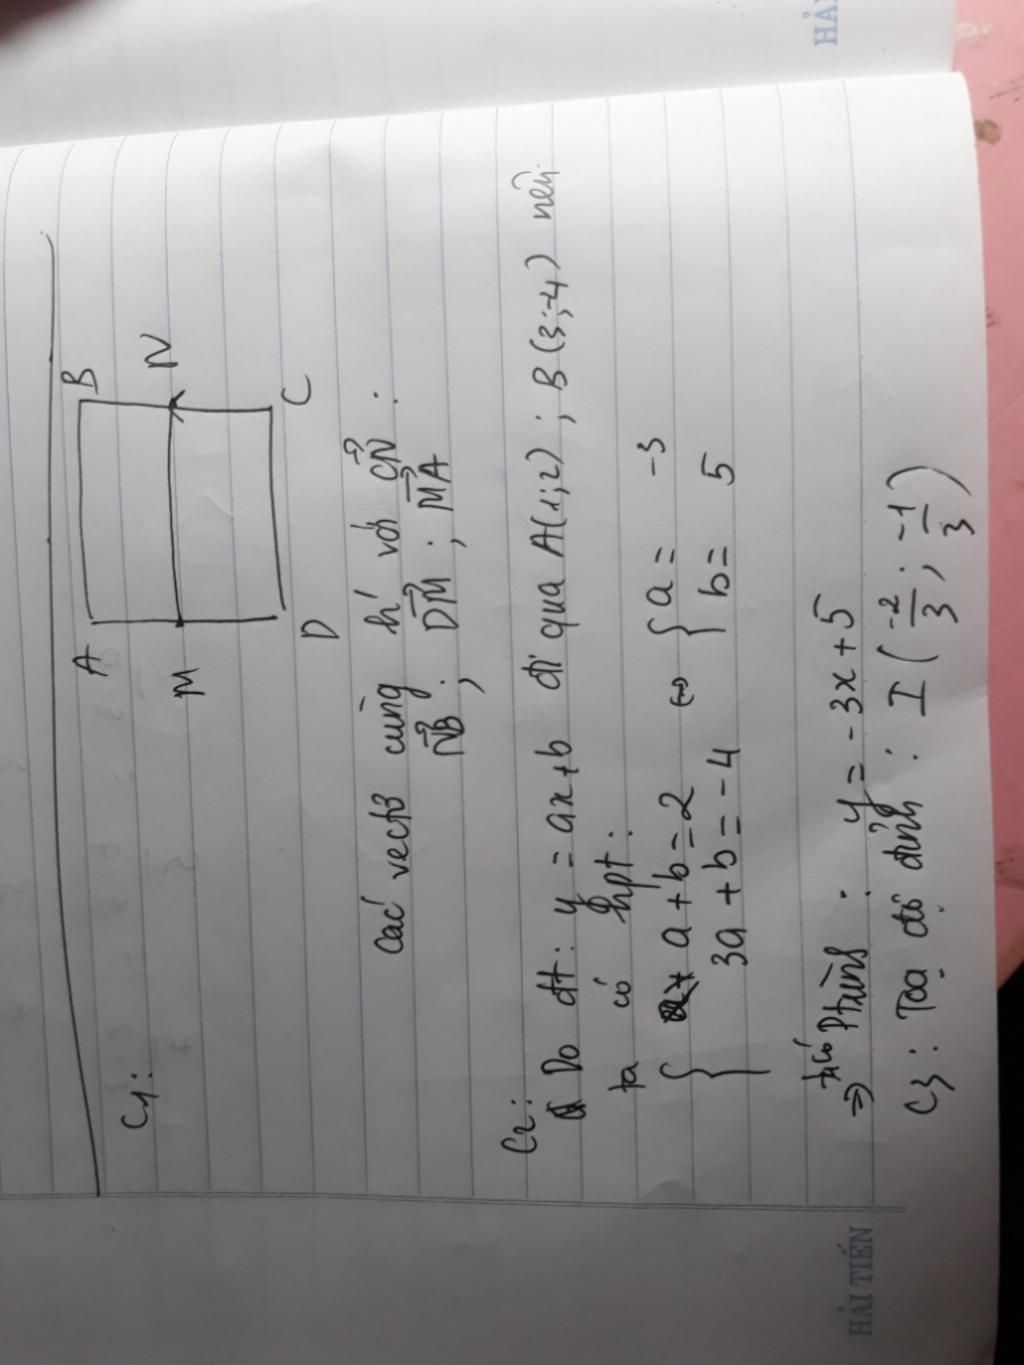 C1:
A
B
M
N
D
C
Các vectơ cùng h' với CN :
NB ; DM ; MA
C2:
Do đt: y = ax+b đi qua A(1;2) ; B(3;-4) nên
ta có hpt:
{ a+b=2 <=> { a= -3
3a+b=-4 b= 5
=> ta có Ptrình : y = -3x+5
C3: Toạ độ đỉnh : I (-2/3 ; -1/3)
HẢI TIẾN
HẢI